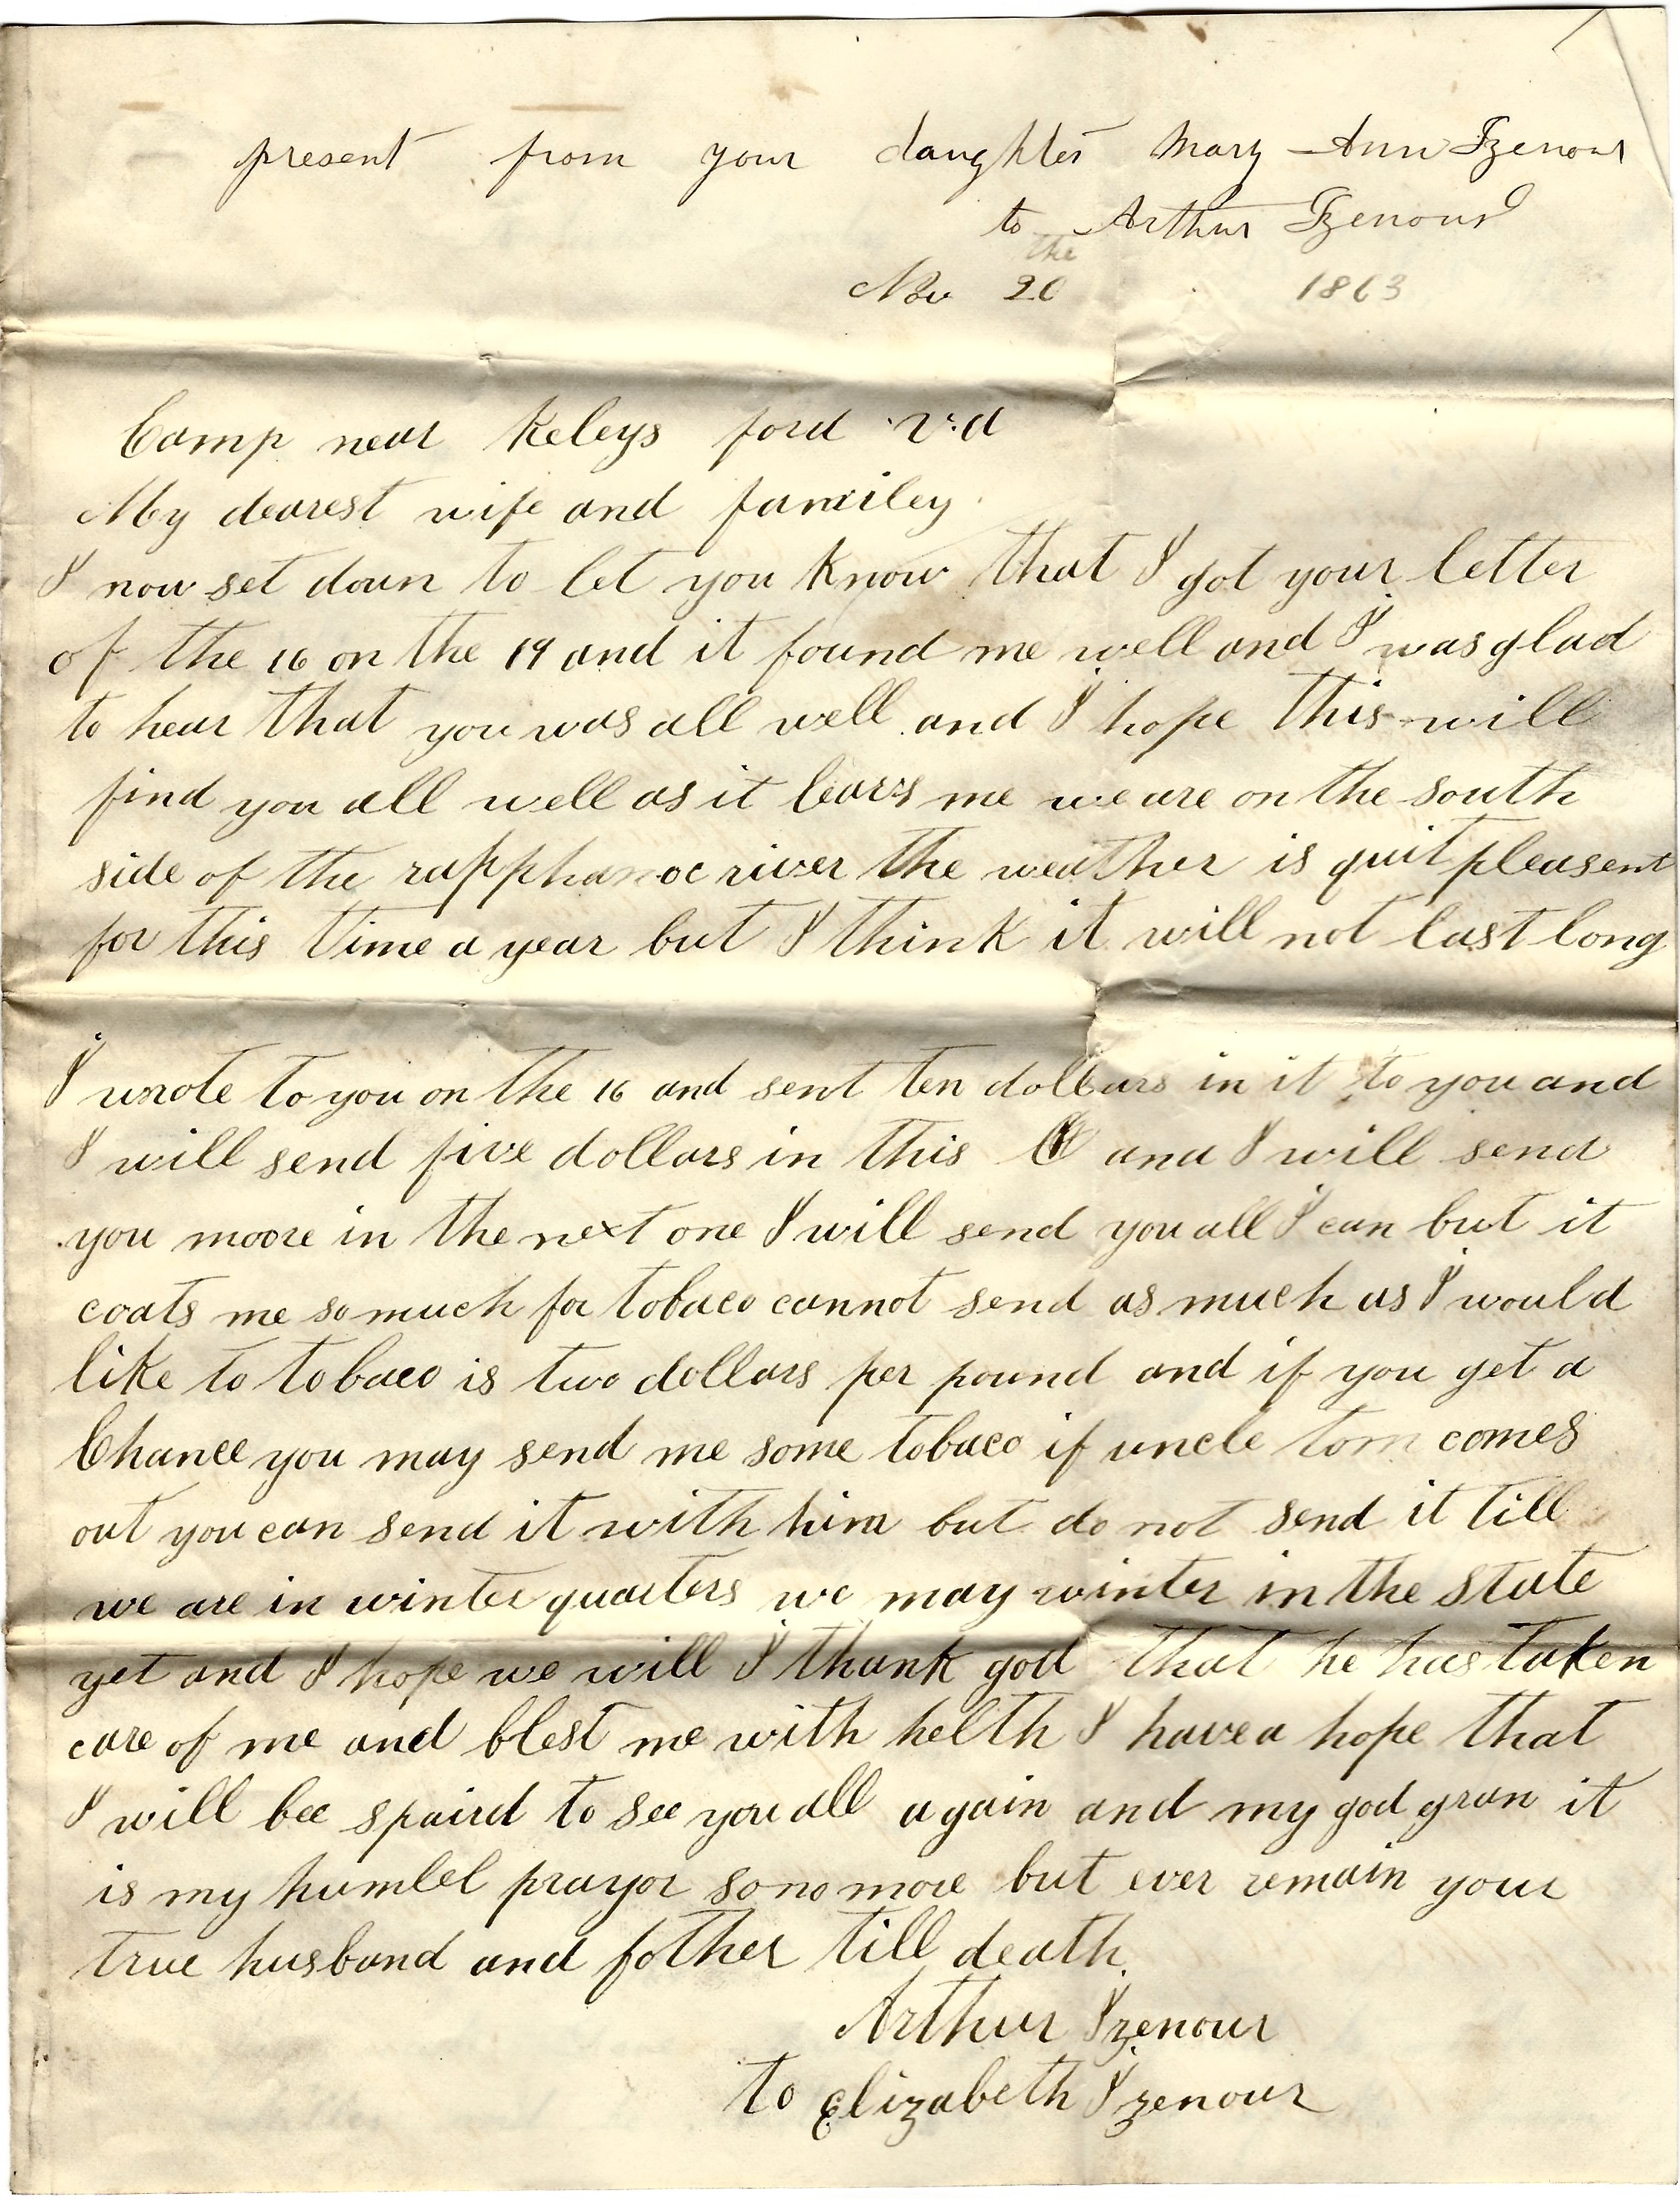 present from your daughter Mary Ann Izenour
to Arthur Izenour
the
Nov 20 1863
Camp near Keleys ford v.a
My dearest wife and familey
I now set down to let you know that I got your letter
of the 16 on the 19 and it found me well and I was glad
to hear that you was all well and I hope this will
find you all well as it leavs me we are on the south
side of the rapphanoc river the weather is quit pleasent
for this time a year but I think it will not last long
I wrote to you on the 16 and sent ten dollars in it to you and
I will send five dollars in this and I will send
you moore in the next one I will send you all I can but it
coats me so much for tobaco cannot send as much as I would
like to tobaco is two dollars per pound and if you get a
Chance you may send me some tobaco if uncle tom comes
out you can send it with him but do not send it till
we are in winter quarters we may winter in the state
yet and I hope we will I thank god that he has taken
care of me and blest me with helth I have a hope that
I will bee spaird to see you all again and my god gran it
is my humbel prayor so no more but ever remain your
true husband and father till death.
Arthur Izenour
to Elizabeth Izenour